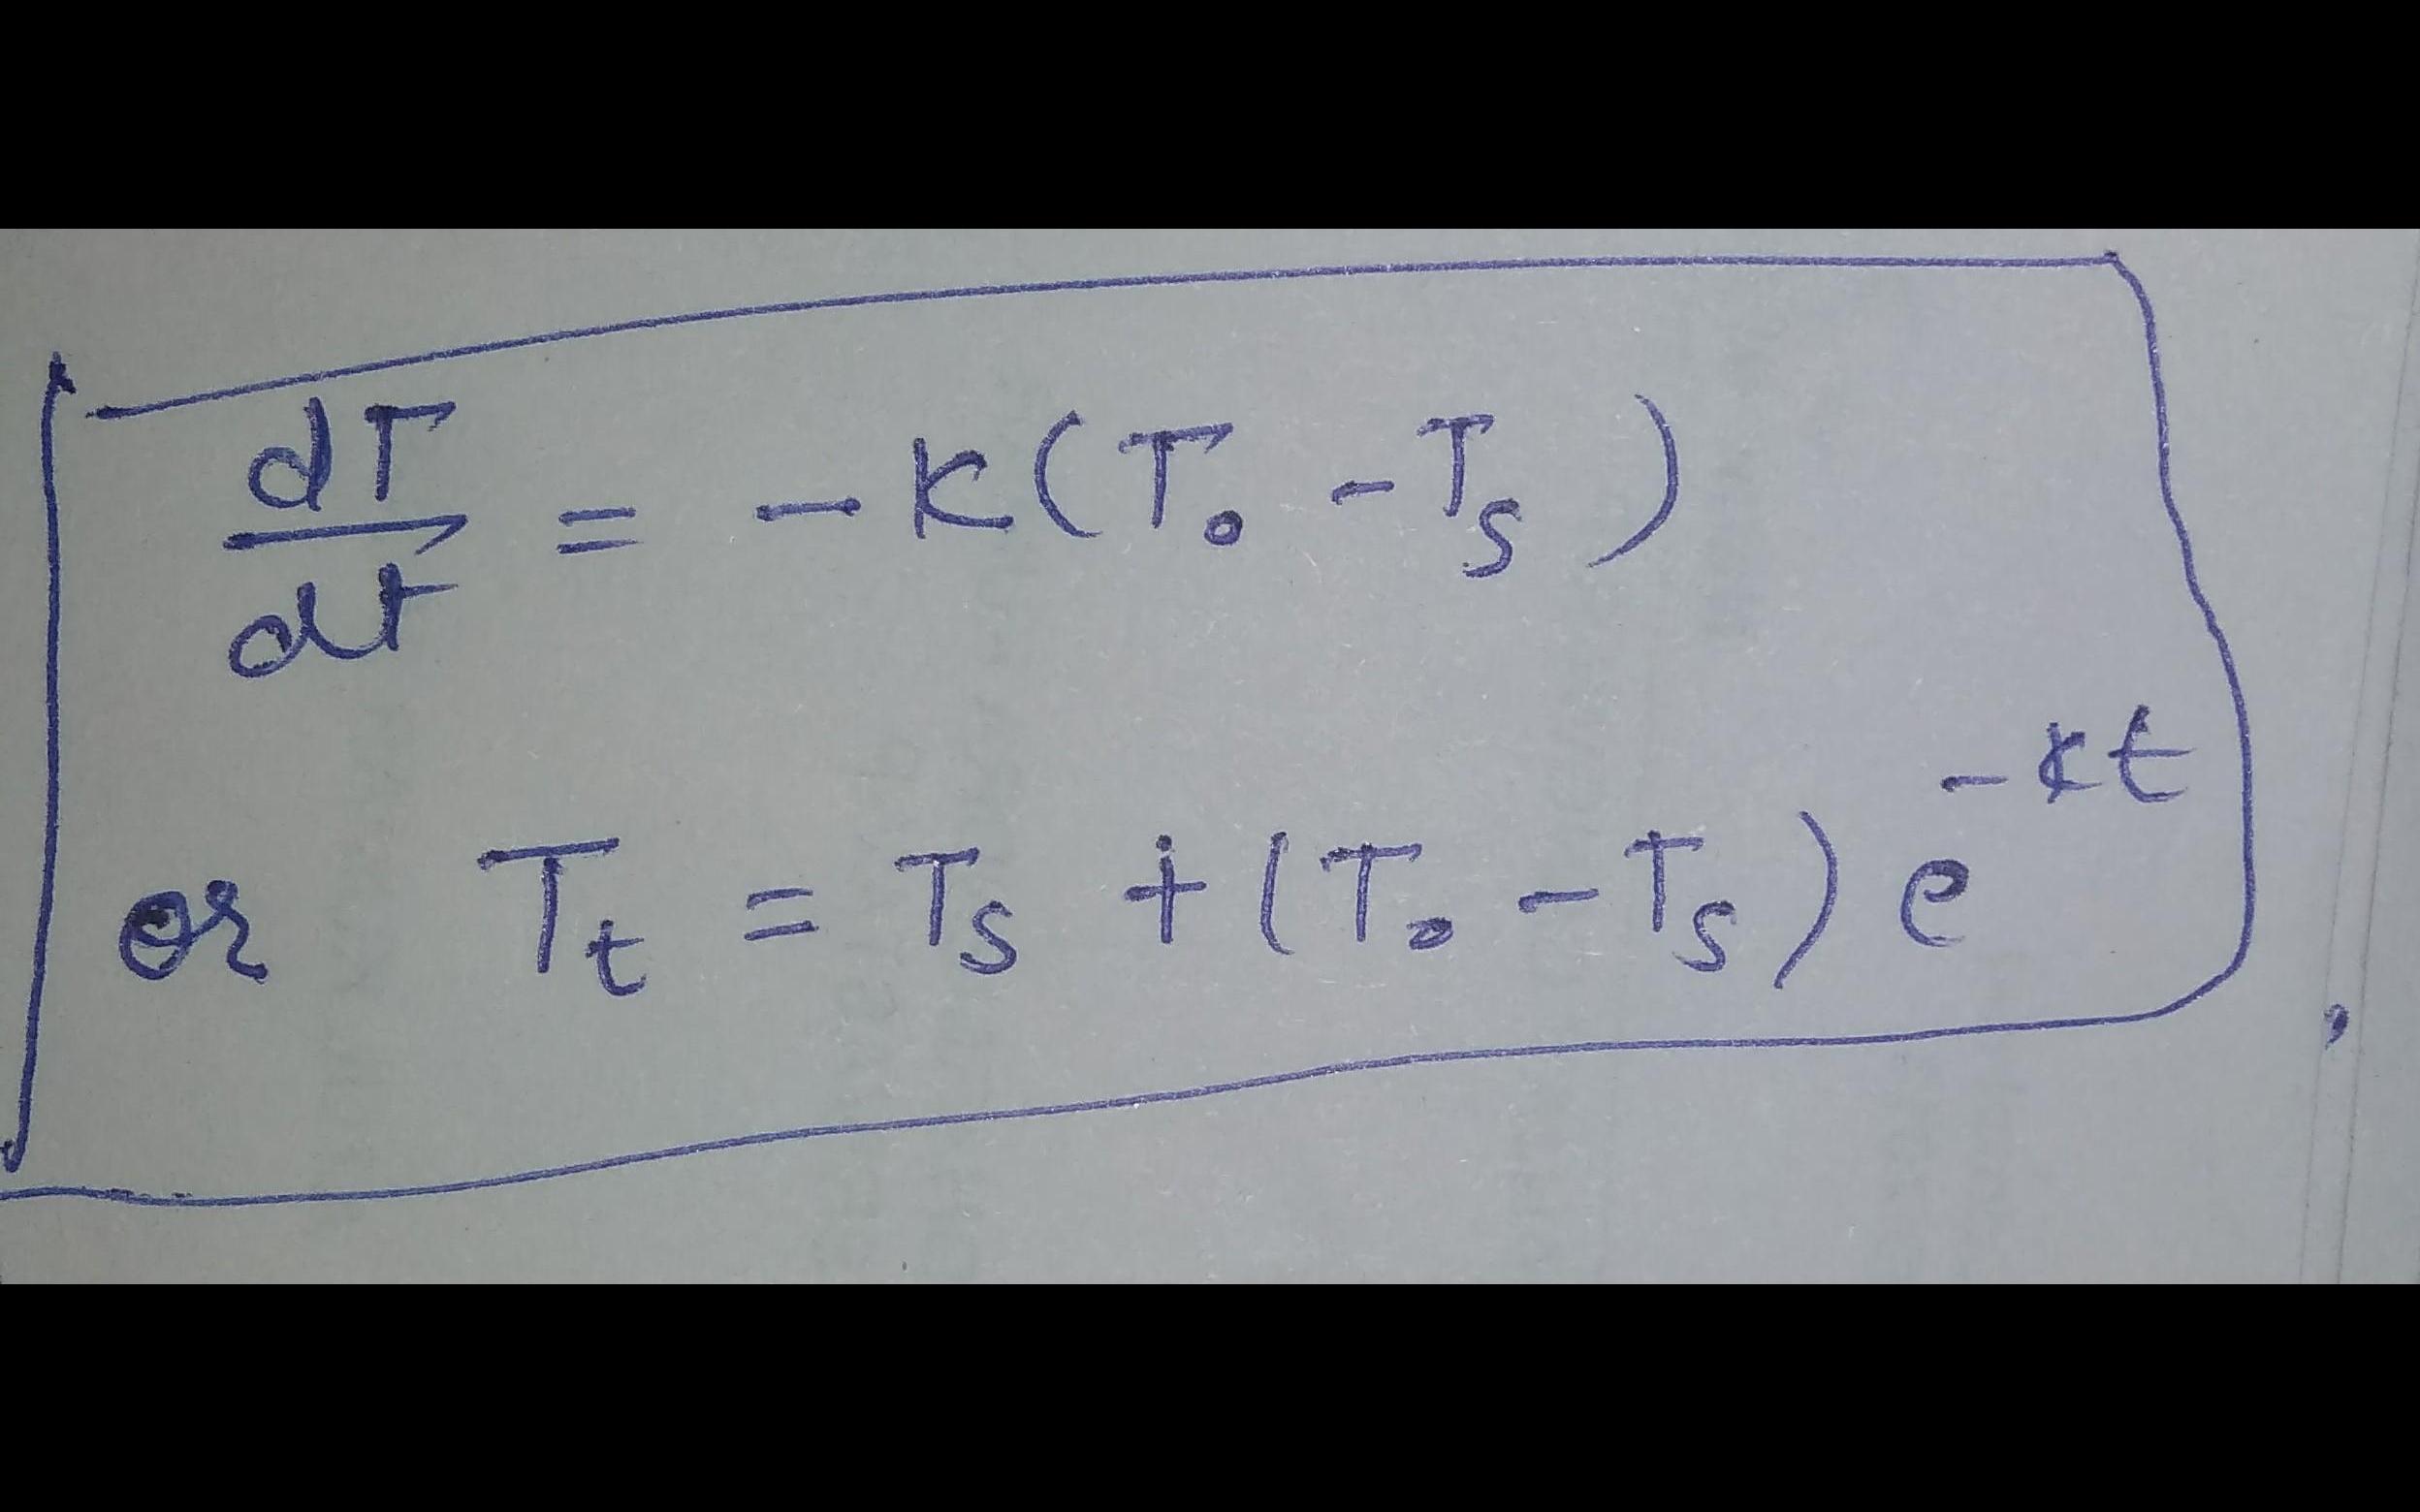 dT/dt = -K(T₀ - Tₛ)
or Tₜ = Tₛ + (T₀ - Tₛ) e^-Kt